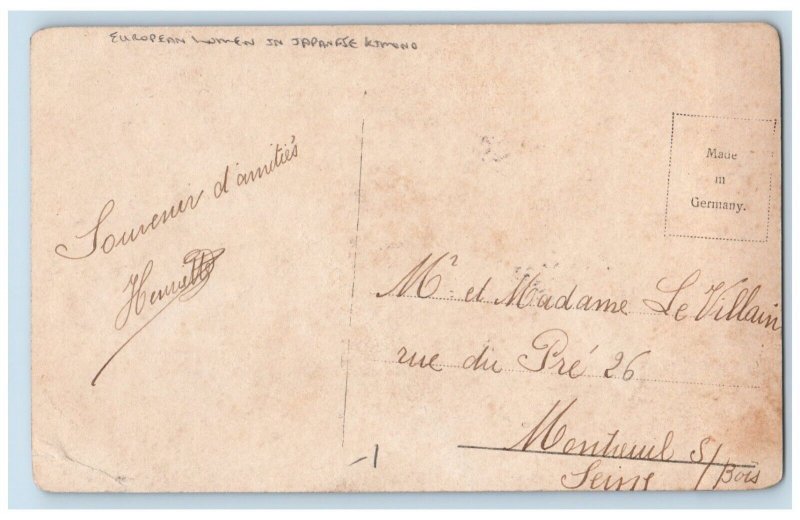 EUROPEAN WOMEN IN JAPANESE KIMONO
Souvenir d'amitiés
Made
in
Germany.
Mr et Madame Le Villain
rue du Pré 26
Montreuil s/
Bois
Seine
-1